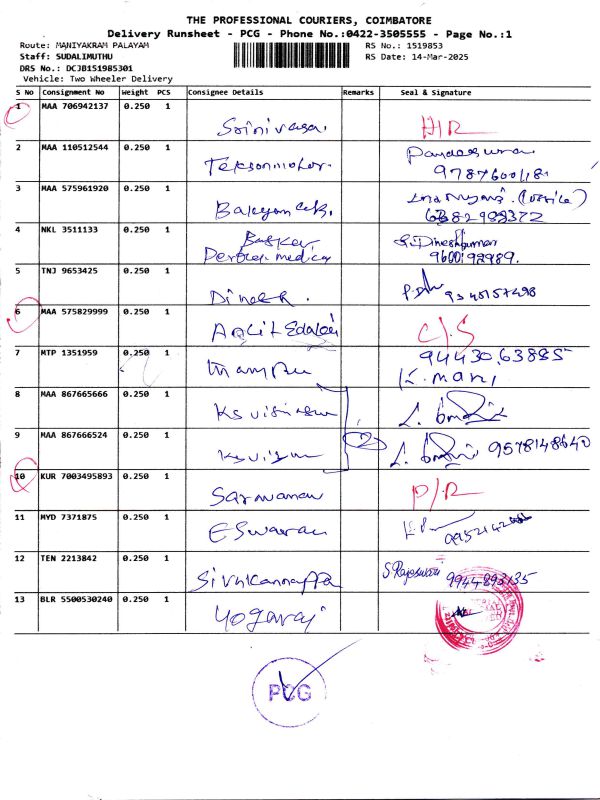 THE PROFESSIONAL COURIERS, COIMBATORE
Delivery Runsheet - PCG - Phone No.:0422-3505555 - Page No.:1
Route: MANIYAKRAM PALAYAM
Staff: SUDALIMUTHU
DRS No.: DCJB151985301
Vehicle: Two Wheeler Delivery
RS No.: 1519853
RS Date: 14-Mar-2025
S No Consignment No Weight PCS Consignee Details Remarks Seal & Signature
1 MAA 706942137 0.250 1 Srinivasa.
2 MAA 110512544 0.250 1
9787600118
3 MAA 575961920 0.250 1
4 NKL 3511133 0.250 1 Basker S. Dineshkumar
medica 9600192989.
5 TNJ 9653425 0.250 1 Dinesh. 9345157498
6 MAA 575829999 0.250 1 C/S
7 MTP 1351959 0.250 1 94430,63885
K. mani,
8 MAA 867665666 0.250 1
9 MAA 867666524 0.250 1 2 9578148640
10 KUR 7003495893 0.250 1 Saravanan P/R
11 MYD 7371875 0.250 1 Eswaran
12 TEN 2213842 0.250 1 S Rajeswari 9944893135
13 BLR 5500530240 0.250 1 Yogaraj
PCG